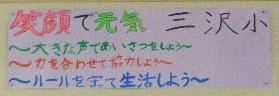 笑顔で元気 三沢小
～大きな声であいさつをしよう～
～力を合わせて協力しよう～
～ルールを守って生活しよう～